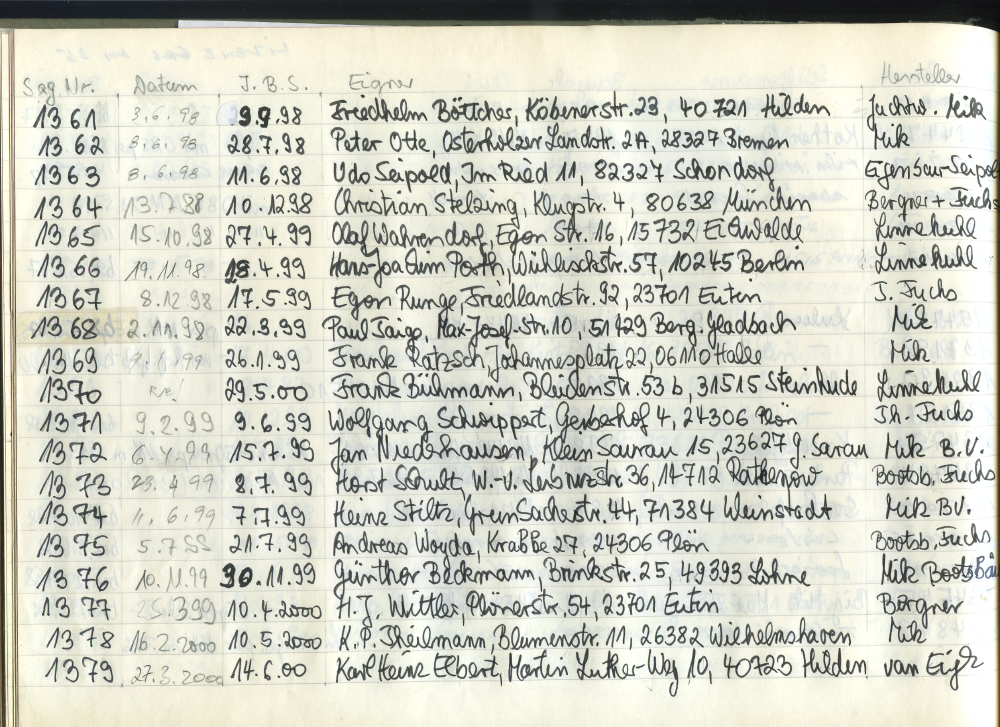 Seg Nr. Datum J.B.S. Eigner Hersteller
1361 3.6.98 9.9.98 Friedhelm Böttcher, Köbenerstr. 23, 40721 Hilden Mik
1362 8.6.98 28.7.98 Peter Otte, Osterholzer Landstr. 2A, 28327 Bremen Mik
1363 8.6.98 11.6.98 Udo Seipold, Im Ried 11, 82327 Schondorf Eigenbau-Seipold
1364 13.7.98 10.12.98 Christian Stelzing, Klugstr. 4, 80638 München Bergner + Fuchs
1365 15.10.98 27.4.99 Olaf Wahrendorf, Egon Str. 16, 15732 Eichwalde Linnekuhl
1366 19.11.98 18.4.99 Hans-Joachim Porth, Wühlischstr. 57, 10245 Berlin Linnekuhl
1367 8.12.98 17.5.99 Egon Runge, Friedlandstr. 92, 23701 Eutin J. Fuchs
1368 2.11.98 22.3.99 Paul Jaige, Max-Josef-Str. 10, 51429 Berg. Gladbach Mik
1369 26.1.99 Frank Rätzsch, Johannesplatz 22, 06110 Halle Mik
1370 29.5.00 Frank Bühmann, Bleidenstr. 53 b, 31515 Steinhude Linnekuhl
1371 9.2.99 9.6.99 Wolfgang Schwippert, Gerberhof 4, 24306 Plön Jh. Fuchs
1372 6.4.99 15.7.99 Jan Niederhausen, Klein Saurau 15, 23627 g. Sarau Mik B.V.
1373 23.4.99 8.7.99 Horst Schult, W.-v. Leibnizstr. 36, 14712 Rathenow Bootsb. Fuchs
1374 11.6.99 7.7.99 Heinz Stiltz, Grunbacherstr. 44, 71384 Weinstadt Mik BV.
1375 5.7.99 21.7.99 Andreas Woyda, Krabbe 27, 24306 Plön Bootsb. Fuchs
1376 10.11.99 30.11.99 Günther Beckmann, Brinkstr. 25, 49393 Lohne Mik Bootsbau
1377 25.3.99 10.4.2000 H.J. Wittler, Plönerstr. 54, 23701 Eutin Bergner
1378 16.2.2000 10.5.2000 K.P. Theilmann, Blumenstr. 11, 26382 Wilhelmshaven Mik
1379 27.3.2000 14.6.00 Karl Heinz Elbert, Martin Luther-Weg 10, 40723 Hilden van Eijk